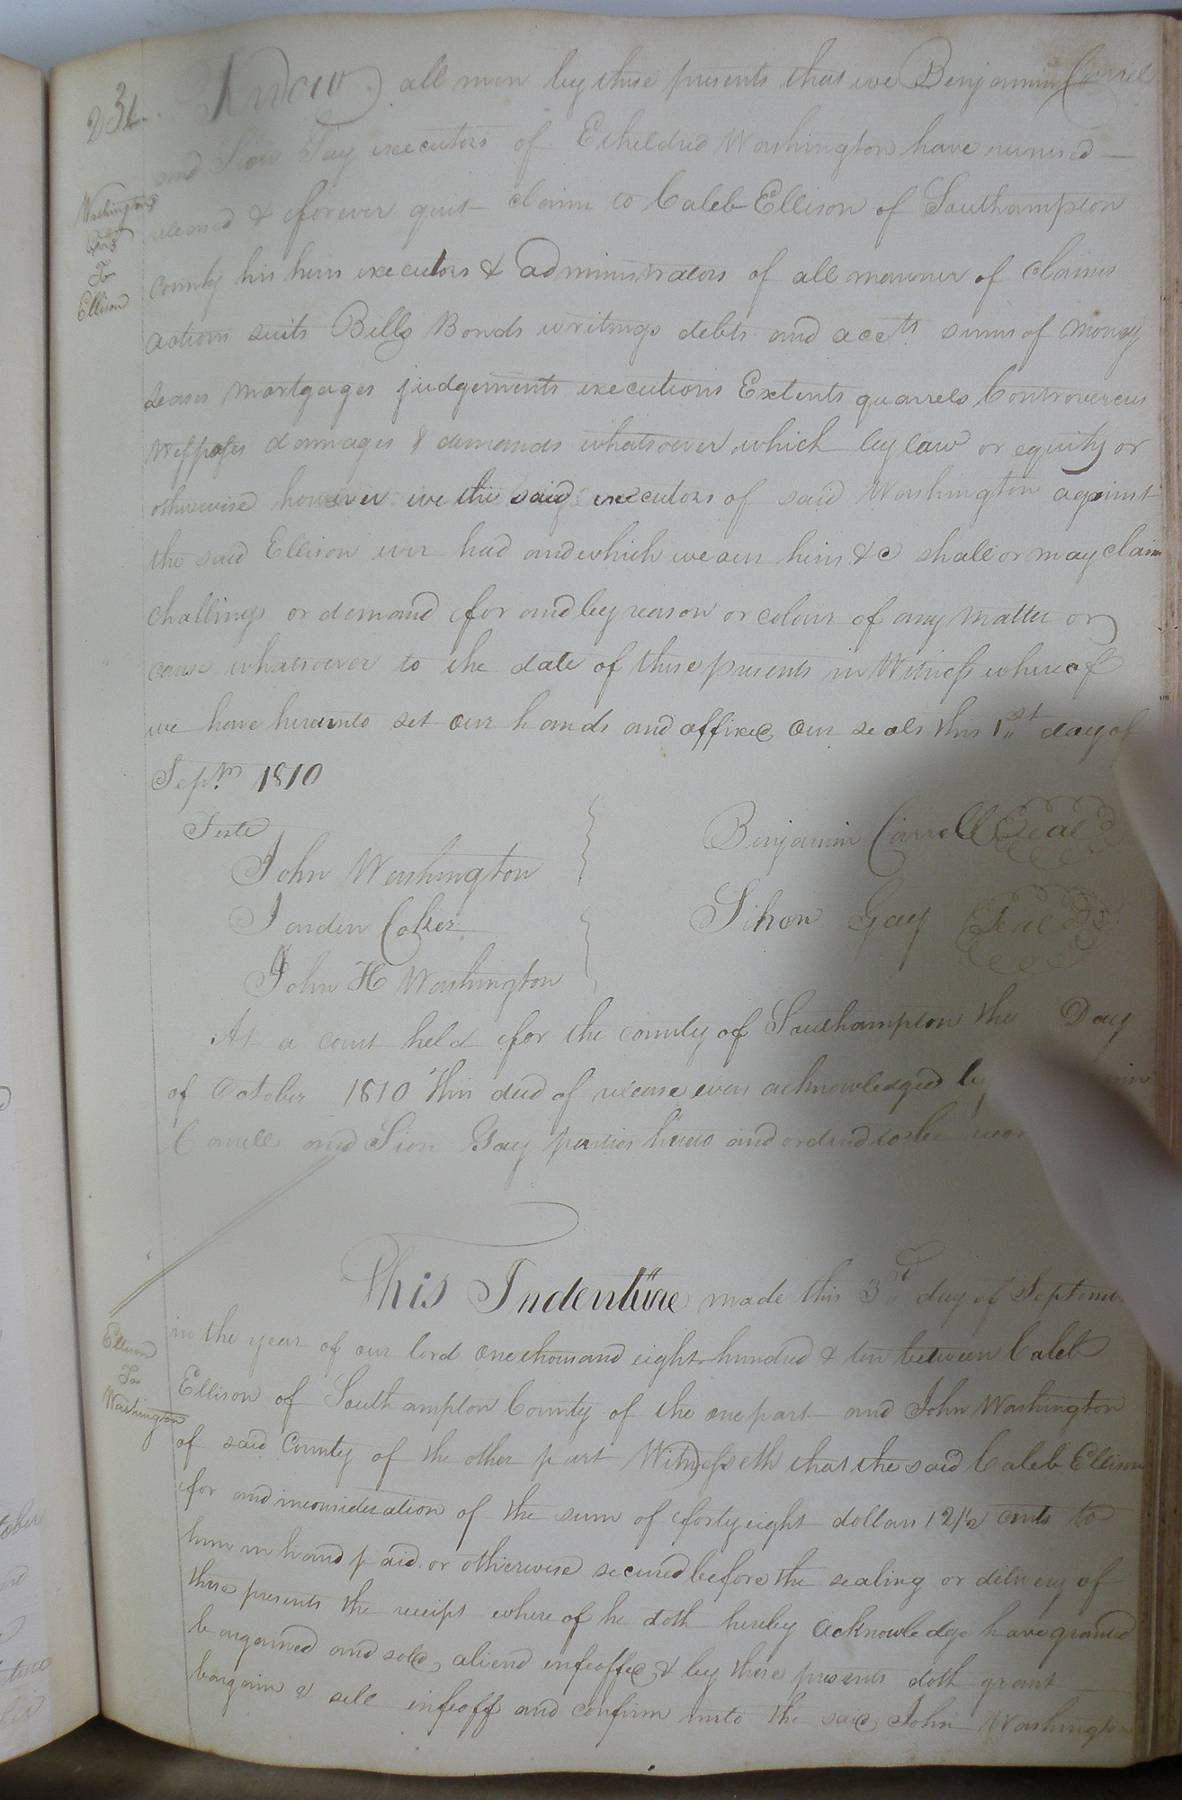 Know all men by these presents that we Benjamin Carrel
and Sion Gay executors of Etheldred Washington have remised
released & forever quit claim to Caleb Ellison of Southampton
County his heirs executors & administrators of all manner of claims
actions suits Bills Bonds writings debts and accts sums of Money
Leases Mortgages judgements executions Extents quarrels Controverceis
tresspases damages & demands whatsoever which by law or equity or
otherwise however we the said executors of said Washington against
the said Ellison ever had and which we our heirs &c shall or may claim
challings or demand for and by reason or colour of any matter or
cause whatsoever to the date of these presents in Witness whereof
we have hereunto set our hands and affixed our seals this 1st day of
Sepm 1810
Teste
John Washington
Benjamin Carrell Seal
Jorden Coker
Sihon Gay Seal
John H Washington
At a court held for the county of Southampton the Day
of October 1810 This deed of release was acknowledged by
Carrell and Sion Gay parties hereto and ordered to be
Washingtons
To
Ellison
This Indenture made this 3rd day of Septem
in the year of our lord one thousand eight hundred & ten between Caleb
Ellison of Southampton County of the one part and John Washington
of said County of the other part Witnesseth that the said Caleb Ellison
for and in consideration of the sum of forty eight dollars 12 1/2 cents to
him in hand paid or otherwise secured before the sealing or delivery of
these presents the receipt where of he doth hereby acknowledge have granted
bargained and sold, aliend infeoffed & by these presents doth grant
bargain & sell infeoff and confirm unto the said John Washington
Ellison
To
Washington